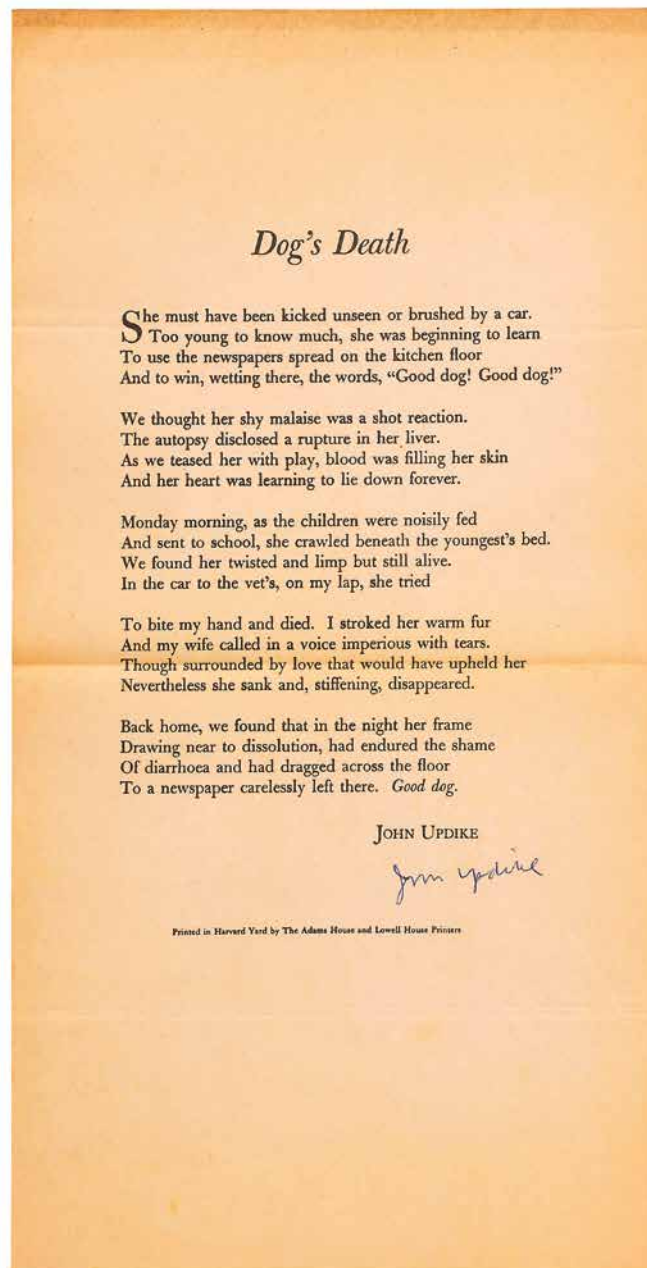 Dog's Death
She must have been kicked unseen or brushed by a car.
Too young to know much, she was beginning to learn
To use the newspapers spread on the kitchen floor
And to win, wetting there, the words, “Good dog! Good dog!”
We thought her shy malaise was a shot reaction.
The autopsy disclosed a rupture in her liver.
As we teased her with play, blood was filling her skin
And her heart was learning to lie down forever.
Monday morning, as the children were noisily fed
And sent to school, she crawled beneath the youngest's bed.
We found her twisted and limp but still alive.
In the car to the vet's, on my lap, she tried
To bite my hand and died. I stroked her warm fur
And my wife called in a voice imperious with tears.
Though surrounded by love that would have upheld her
Nevertheless she sank and, stiffening, disappeared.
Back home, we found that in the night her frame
Drawing near to dissolution, had endured the shame
Of diarrhoea and had dragged across the floor
To a newspaper carelessly left there. Good dog.
JOHN UPDIKE
John Updike
Printed in Harvard Yard by The Adams House and Lowell House Printers